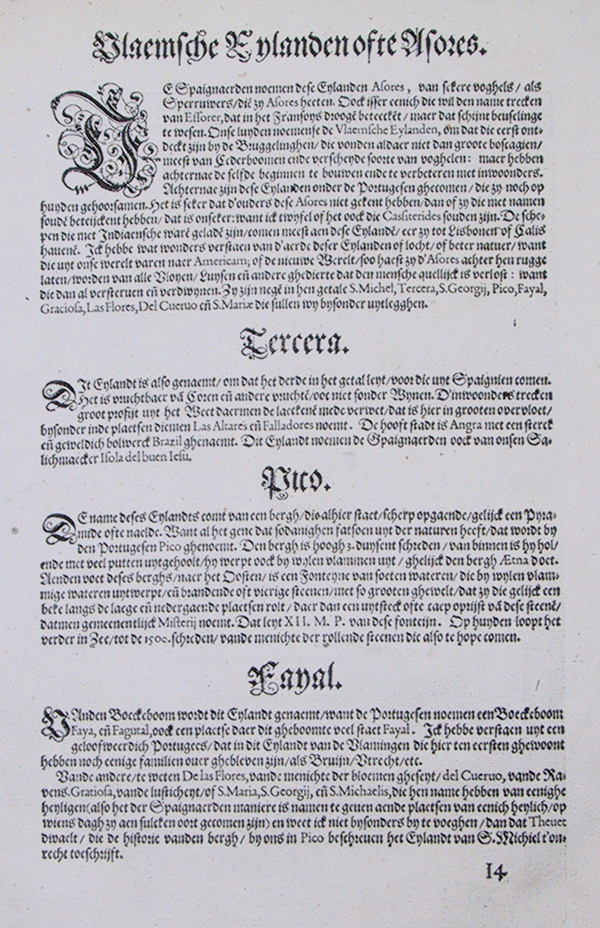 Vlaemsche Eylanden ofte Asores.
DE Spaignaerden noemen dese Eylanden Asores, van sekere voghels/ als
Sperruwers/die zy Asores heeten. Oock isser eenich die wil den name trecken
van Essorer, dat in het Fransoys droogē beteeckēt/ maer dat schijnt beuselinge
te wesen. Onse luyden noemense de Vlaemsche Eylanden, om dat die eerst ont-
deckt zijn by de Bruggelinghen/ die vonden aldaer niet dan groote boscagien/
meest van Cederboomen ende verscheyde soorte van voghelen: maer hebben
achternae de selfde beginnen te bouwen ende te verbeteren met inwoonders.
Achternae zijn dese Eylanden onder de Portugesen ghecomen/ die zy noch op
huyden gehoorsamen. Het is seker dat d'ouders dese Asores niet gekent hebben/dan of zy die met namen
soudē beteijckent hebben/ dat is onseker: want ick twyfel of het oock die Cassiterides souden zijn. De sche-
pen die met Indiaensche warē geladē zijn/comen meest aen dese Eylandē/ eer zy tot Lisbonen of Calis
havenē. Ick hebbe wat wonders verstaen van d'aerde deser Eylanden of locht/ of beter natuer/ want
die uyt onse werelt varen naer Americam; of de nieuwe Werelt/soo haest zy d'Asores achter hen rugge
laten/worden van alle Vloyen/ Luysen eñ andere ghedierte dat den mensche quellijck is verlost: want
die dan al versteruen eñ verdwynen. Zy zijn negē in hen getale S. Michel, Tercera, S. Georgij, Pico, Fayal,
Graciosa, Las Flores, Del Cueruo eñ S. Mariæ die sullen wy bysonder uytlegghen.
Tercera.
DIt Eylandt is also genaemt/ om dat het derde in het getal leyt/voor die uyt Spaignien comen.
Het is vruchtbaer vā Coren eñ andere vruchtē/oock niet sonder Wynen. D'inwoonders trecken
groot profijt uyt het Weet daermen de laeckenē mede verwet/dat is hier in grooten overvloet/
bysonder inde plaetsen diemen Las Altares eñ Falladores noemt. De hooft stadt is Angra met een sterck
eñ geweldich bolwerck Brazil ghenaemt. Dit Eylandt noemen de Spaignaerden oock van onsen Sa-
lichmaecker Isola del buen Iesu.
Pico.
DE name deses Eylandts comt van een bergh/ die alhier staet/scherp opgaende/gelijck een Pyra-
mide ofte naelde. Want al het gene dat sodanighen fatsoen uyt der naturen heeft/dat wordt by
den Portugesen Pico ghenoemt. Den bergh is hoogh 3. duysent schreden/ van binnen is hy hol/
ende met veel putten uytgeholt/hy werpt oock by wylen vlammen uyt/ ghelijck den bergh Ætna doet.
Aenden voet deses berghs/naer het Oosten/ is een Fonteyne van soeten wateren/ die by wylen vlam-
mige wateren uytwerpt/eñ brandende oft vierige steenen/met so grooten ghewelt/dat zy die gelijck een
beke langs de laege eñ nedergaende plaetsen rolt/ daer dan een uytsteck ofte caep oprijst vā dese steenē/
datmen gemeenentlijck Misterij noemt. Dat leyt XII. M. P. van dese fonteijn. Op huyden loopt het
verder in Zee/tot de 1500. schreden/ vande menichte der rollende steenen die also te hope comen.
Fayal.
VAnden Boeckeboom wordt dit Eylandt genaemt/want de Portugesen noemen een Boeckeboom
Faya, eñ Fagutal, oock een plaetse daer dit gheboomte veel staet Fayal. Ick hebbe verstaen uyt een
geloofweerdich Portugees/ dat in dit Eylandt van de Vlamingen die hier ten eersten ghewoont
hebben noch eenige familien over ghebleven zijn/als Bruijn/Vtrecht/etc.
Vande andere/te weten De las Flores, vande menichte der bloemen gheseyt/ del Cueruo, vande Ra-
vens. Gratiosa, vande lusticheyt/of S. Maria, S. Georgij, eñ S. Michaelis, die hen name hebben van eenighe
heyligen(also het der Spaignaerden maniere is namen te geuen aende plaetsen van eenich heylich/op
wiens dagh zy aen sulcken oort gecomen zijn) en weet ick niet bysonders by te voeghen/ dan dat Thevet
dwaelt/ die de historie vanden bergh/ by ons in Pico beschreuen het Eylandt van S. Michiel t'on-
recht toeschrijft.
14